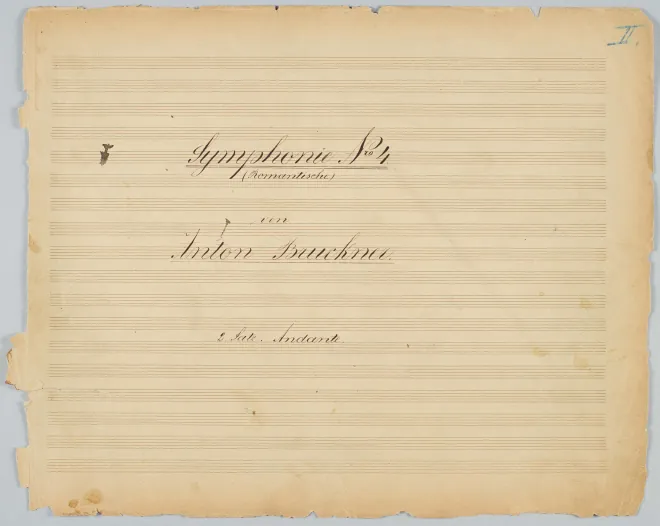 II.
Symphonie Nro 4
(Romantische)
von
Anton Bruckner.
2. Satz. Andante.